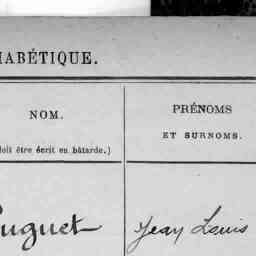 HABÉTIQUE.
NOM.
PRÉNOMS
ET SURNOMS.
doit être écrit en bâtarde.)
uguet
Jean Louis